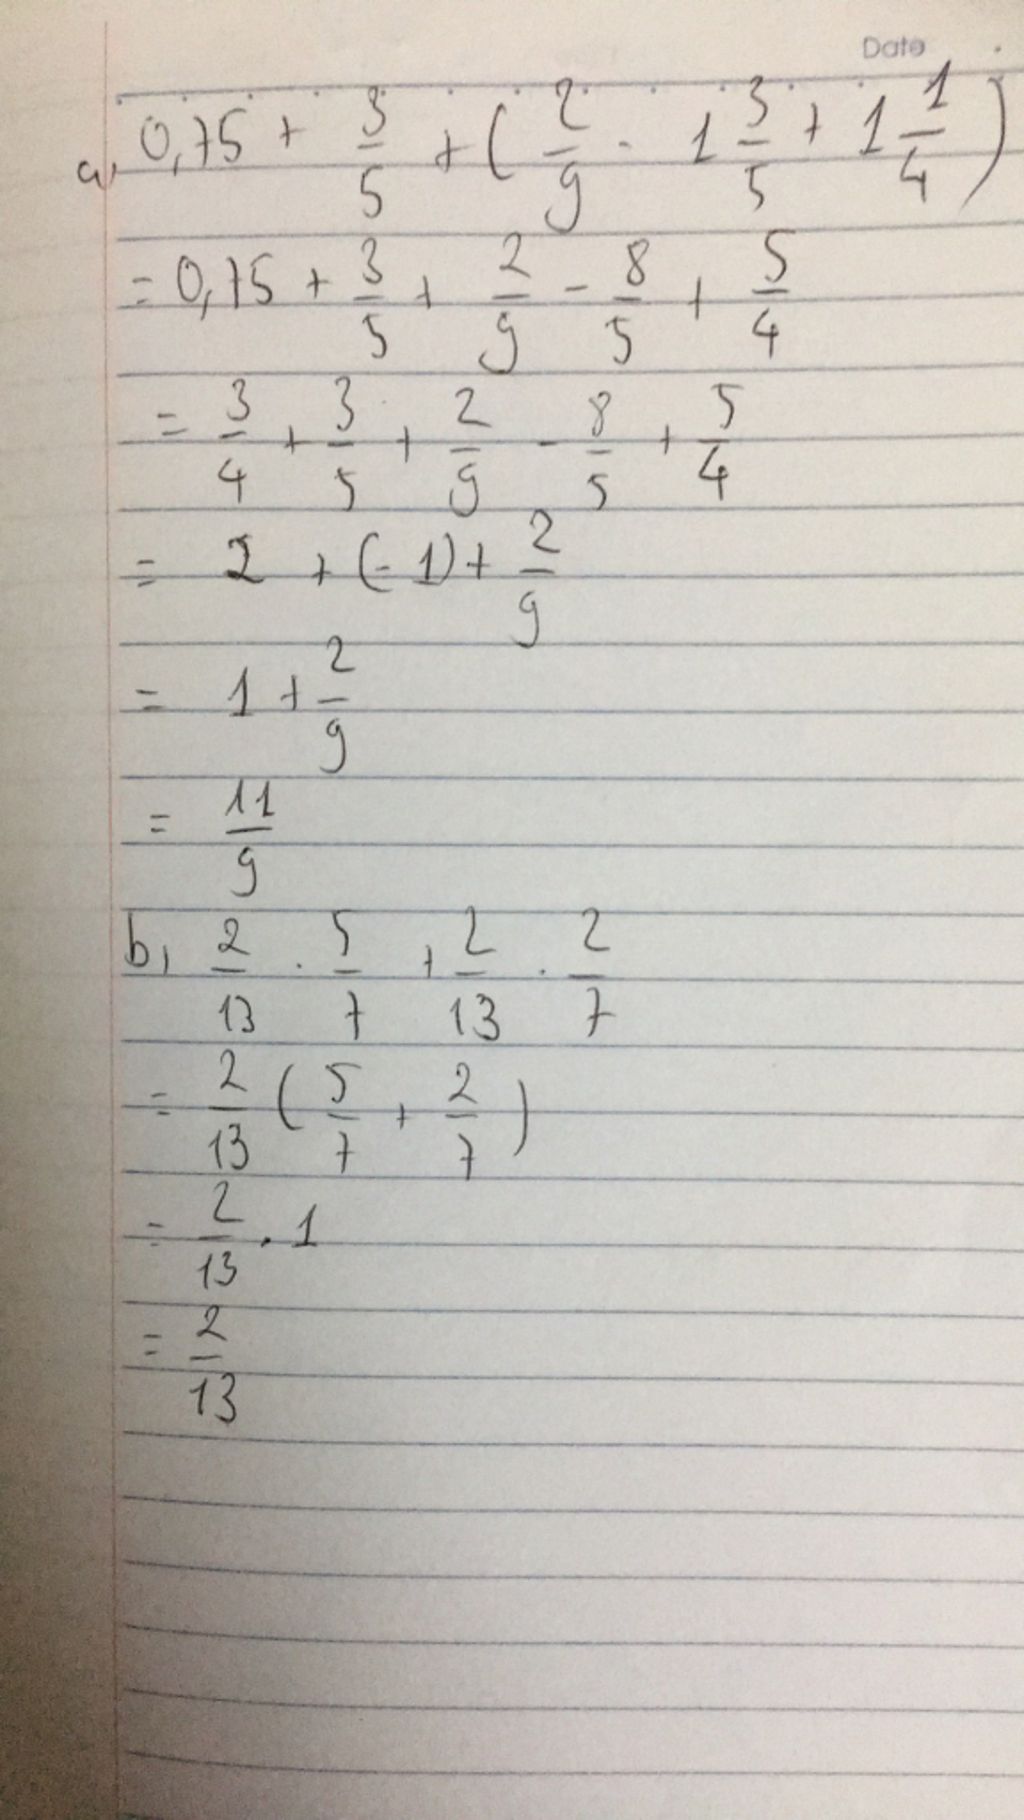 Date
a, 0,75 + 3/5 + ( 2/9 - 1 3/5 + 1 1/4 )
= 0,75 + 3/5 + 2/9 - 8/5 + 5/4
= 3/4 + 3/5 + 2/9 - 8/5 + 5/4
= 2 + (-1) + 2/9
= 1 + 2/9
= 11/9
b, 2/13 . 5/7 + 2/13 . 2/7
= 2/13 ( 5/7 + 2/7 )
= 2/13 . 1
= 2/13